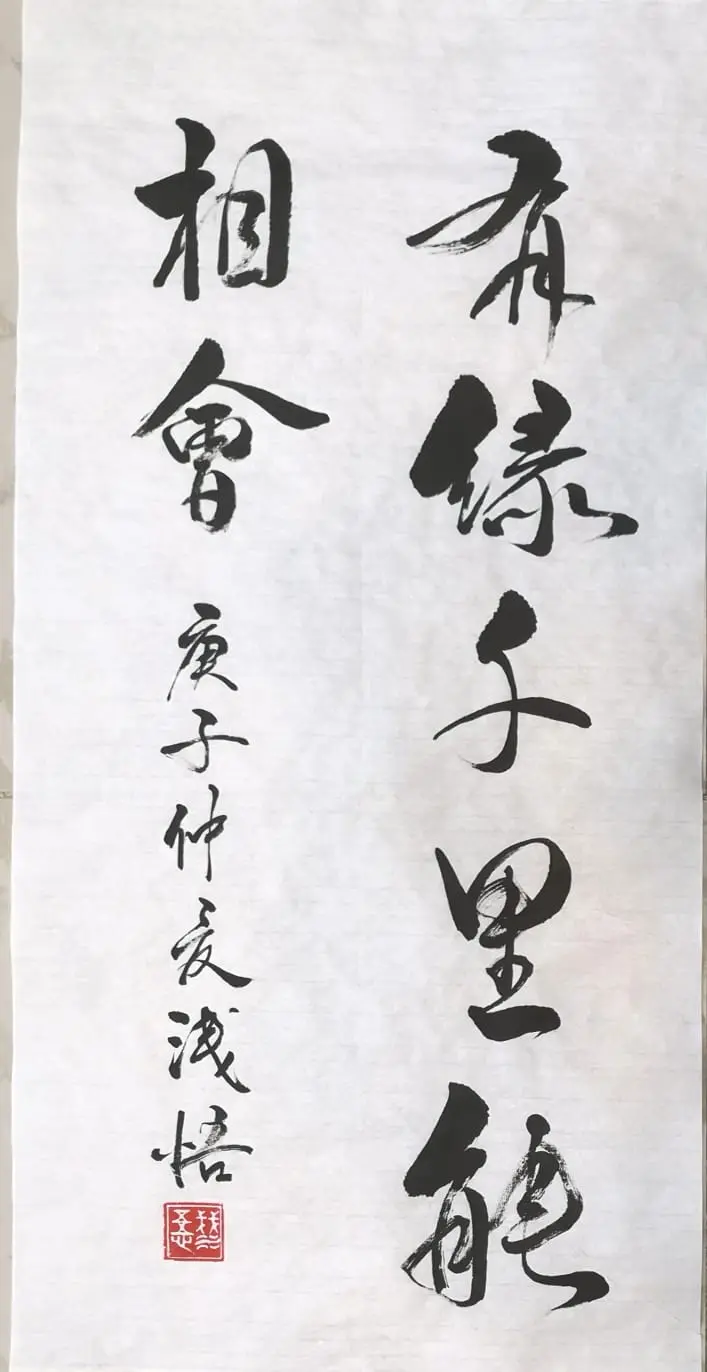 有緣千里能
相會
庚子仲夏浅悟